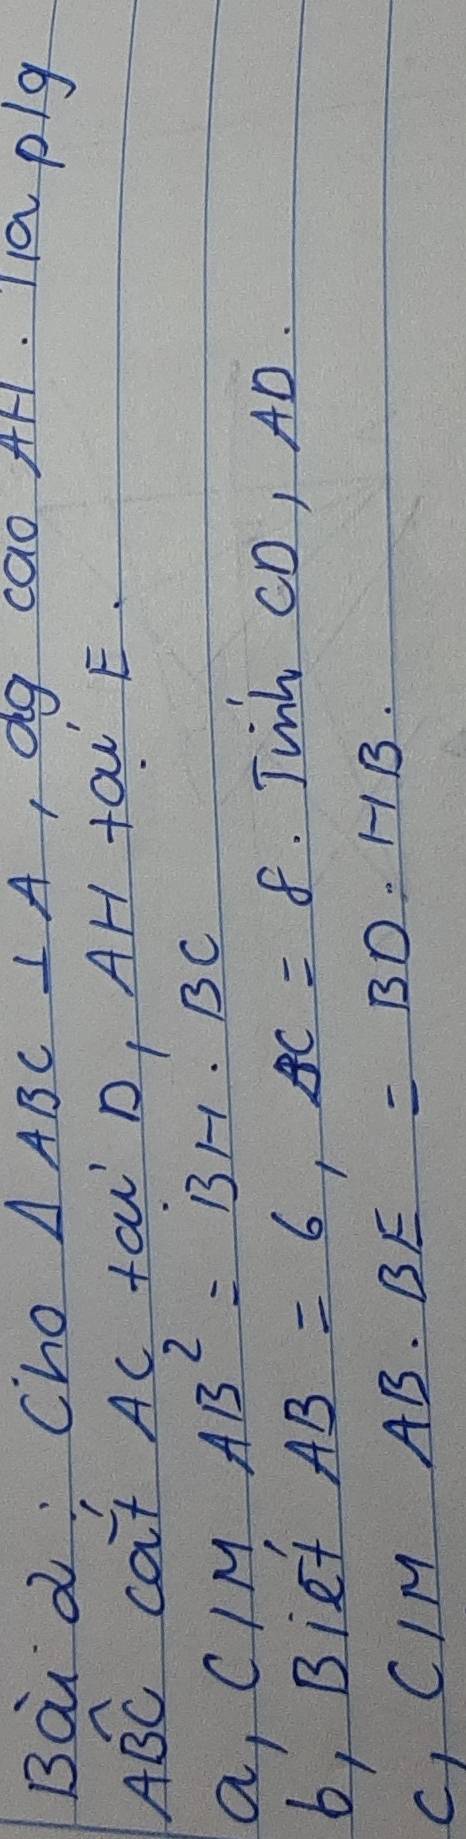 Bài 2: Cho Δ ABC ⊥ A, đg cao AH. Tia p/g
ABĈ cắt AC tại D, AH tại E.
a, C/M AB² = BH. BC
b, Biết AB = 6, AC = 8. Tính CD, AD.
c, C/M AB. BE = BD. HB.